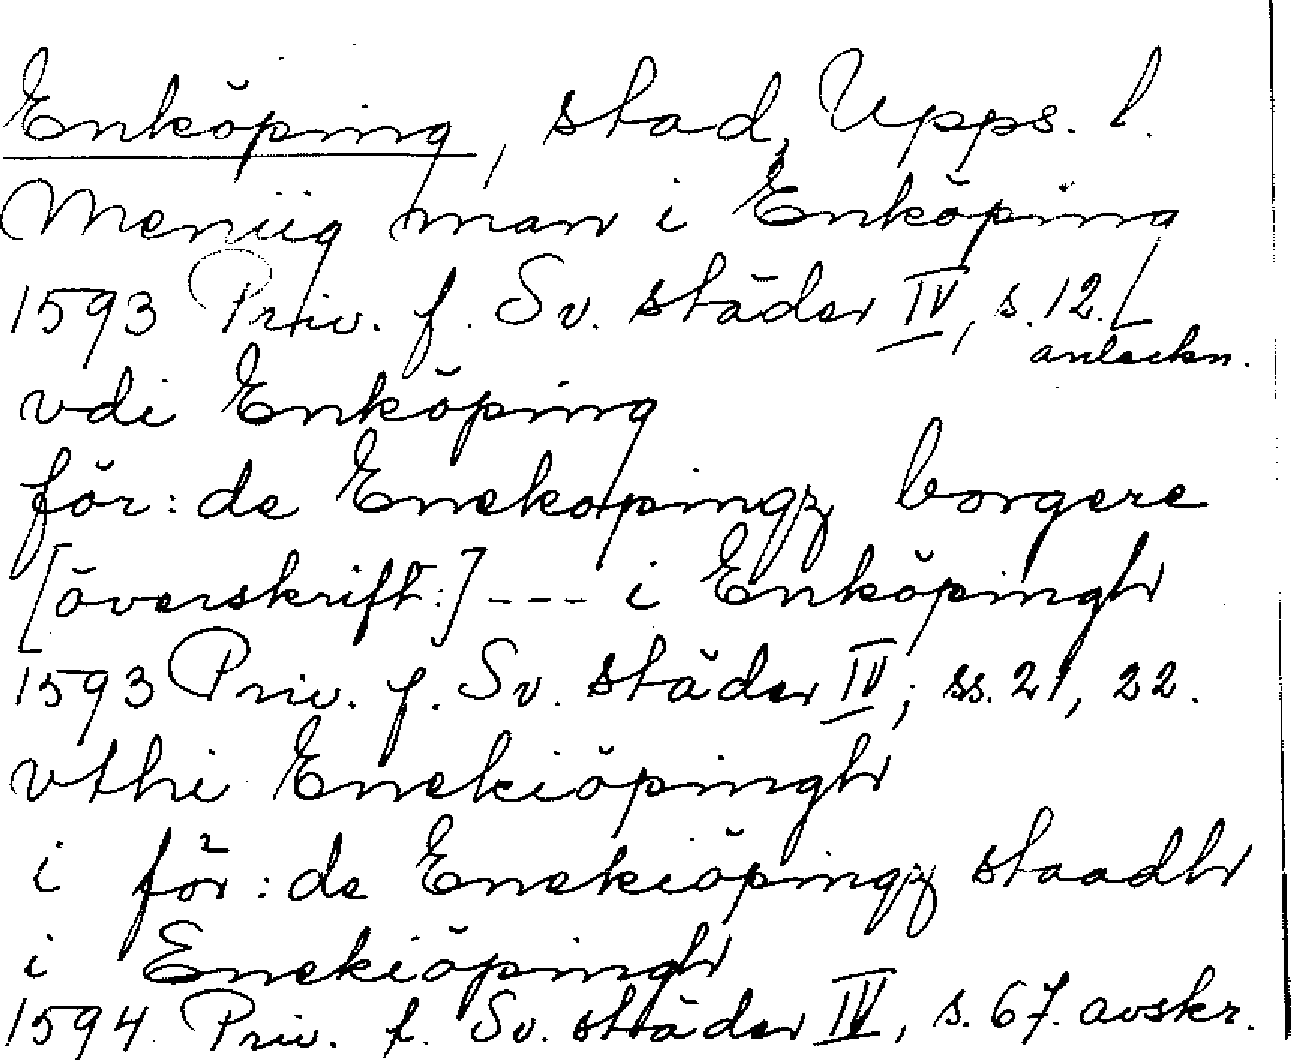 Enköping, stad, Upps. l.
Meniig man i Enköping
1593 Priv. f. Sv. städer IV, s. 12. [
anteckn.
vdi Enköping
för: de Enekopingz borgere
[överskrift:] --- i Enköpingh
1593 Priv. f. Sv. städer IV; ss. 21, 22.
vthi Enekiöpingh
i för: de Enekiöpingz staadh
i Enekiöpingh
1594 Priv. f. Sv. städer IV, s. 67. avskr.